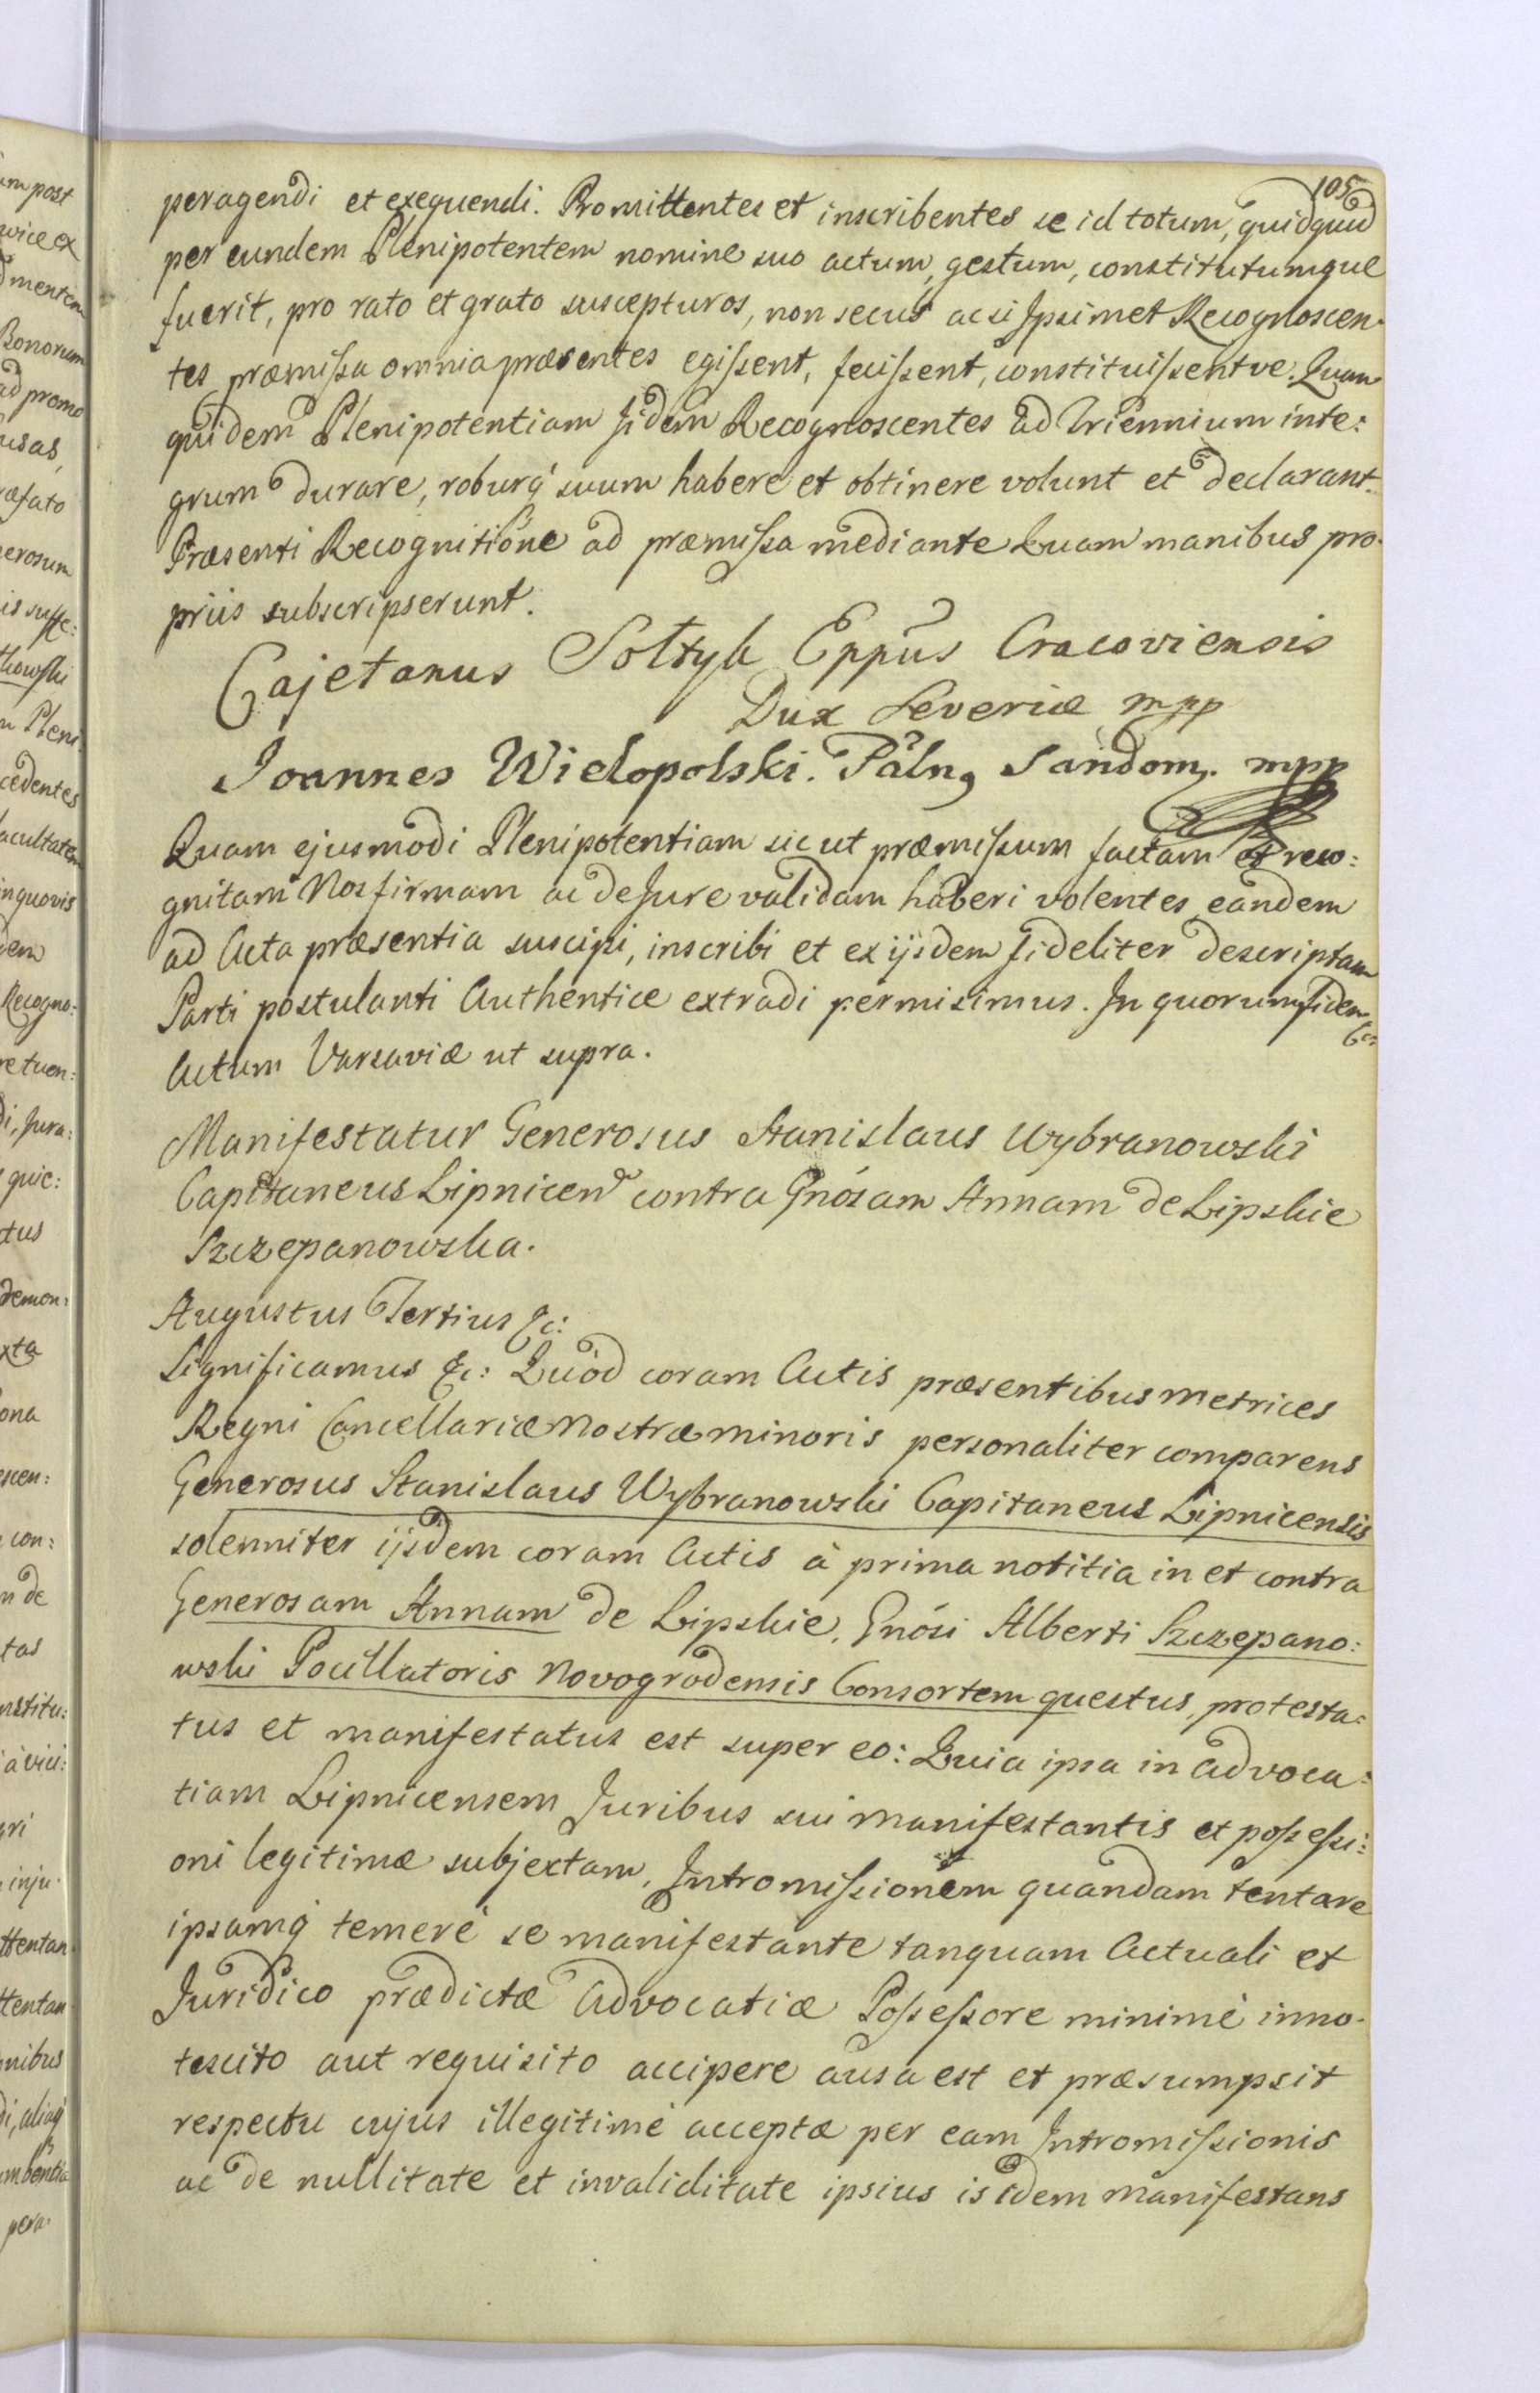 105
peragendi et exequendi. Promittentes et inscribentes se id totum, quidquid
per eundem Plenipotentem nomine suo actum, gestum, constitutumque
fuerit, pro rato et grato suscepturos, non secus ac si Ipsimet Recognoscen-
tes præmissa omnia præsentes egissent, fecissent, constituissentve. Quam
quidem Plenipotentiam Iidem Recognoscentes ad Triennium inte:
grum durare, roburq́ suum habere et obtinere volunt et declarant.
Præsenti Recognitione ad præmissa mediante Quam manibus pro-
priis subscripserunt.
Cajetanus Sołtyk Eppūs Cracoviensis
Dux Severiæ mpp
Joannes Wielopolski. Palng Sandom. mpp
Quam ejusmodi Plenipotentiam sicut præmissum factam et reco:
gnitam Nos firmam ac de Jure validam haberi volentes, eandem
ad Acta præsentia suscipi, inscribi et ex ijsdem fideliter descriptam
Parti postulanti Authentice extradi permisimus. In quorum fidem &c:
Actum Varsaviæ ut supra.
Manifestatur Generosus Stanislaus Wybranowski
Capitaneus Lipnicen contra Gnósam Annam de Lipskie
Szczepanowska.
Augustus Tertius &c:
Significamus &c: Quòd coram Actis præsentibus Metrices
Regni Cancellariæ Nostræ minoris personaliter comparens
Generosus Stanislaus Wybranowski Capitaneus Lipnicensis
solenniter ijsdem coram Actis à prima notitia in et contra
Generosam Annam de Lipskie, Gnósi Alberti Szczepano:
wski Pocillatoris Novogrodensis Consortem questus, protesta:
tus et manifestatus est super eo: Quia ipsa in Advoca:
tiam Lipnicensem Juribus sui Manifestantis et possessi:
oni legitimæ subjectam, Intromissionem quandam tentare
ipsamq́ temerè se manifestante tanquam Actuali et
Juridico prædictæ Advocatiæ Possessore minimè inno-
tescito aut requisito accipere ausa est et præsumpsit
respectu cujus illegitimè acceptæ per eam Intromissionis
ac de nullitate et invaliditate ipsius isidem Manifestans